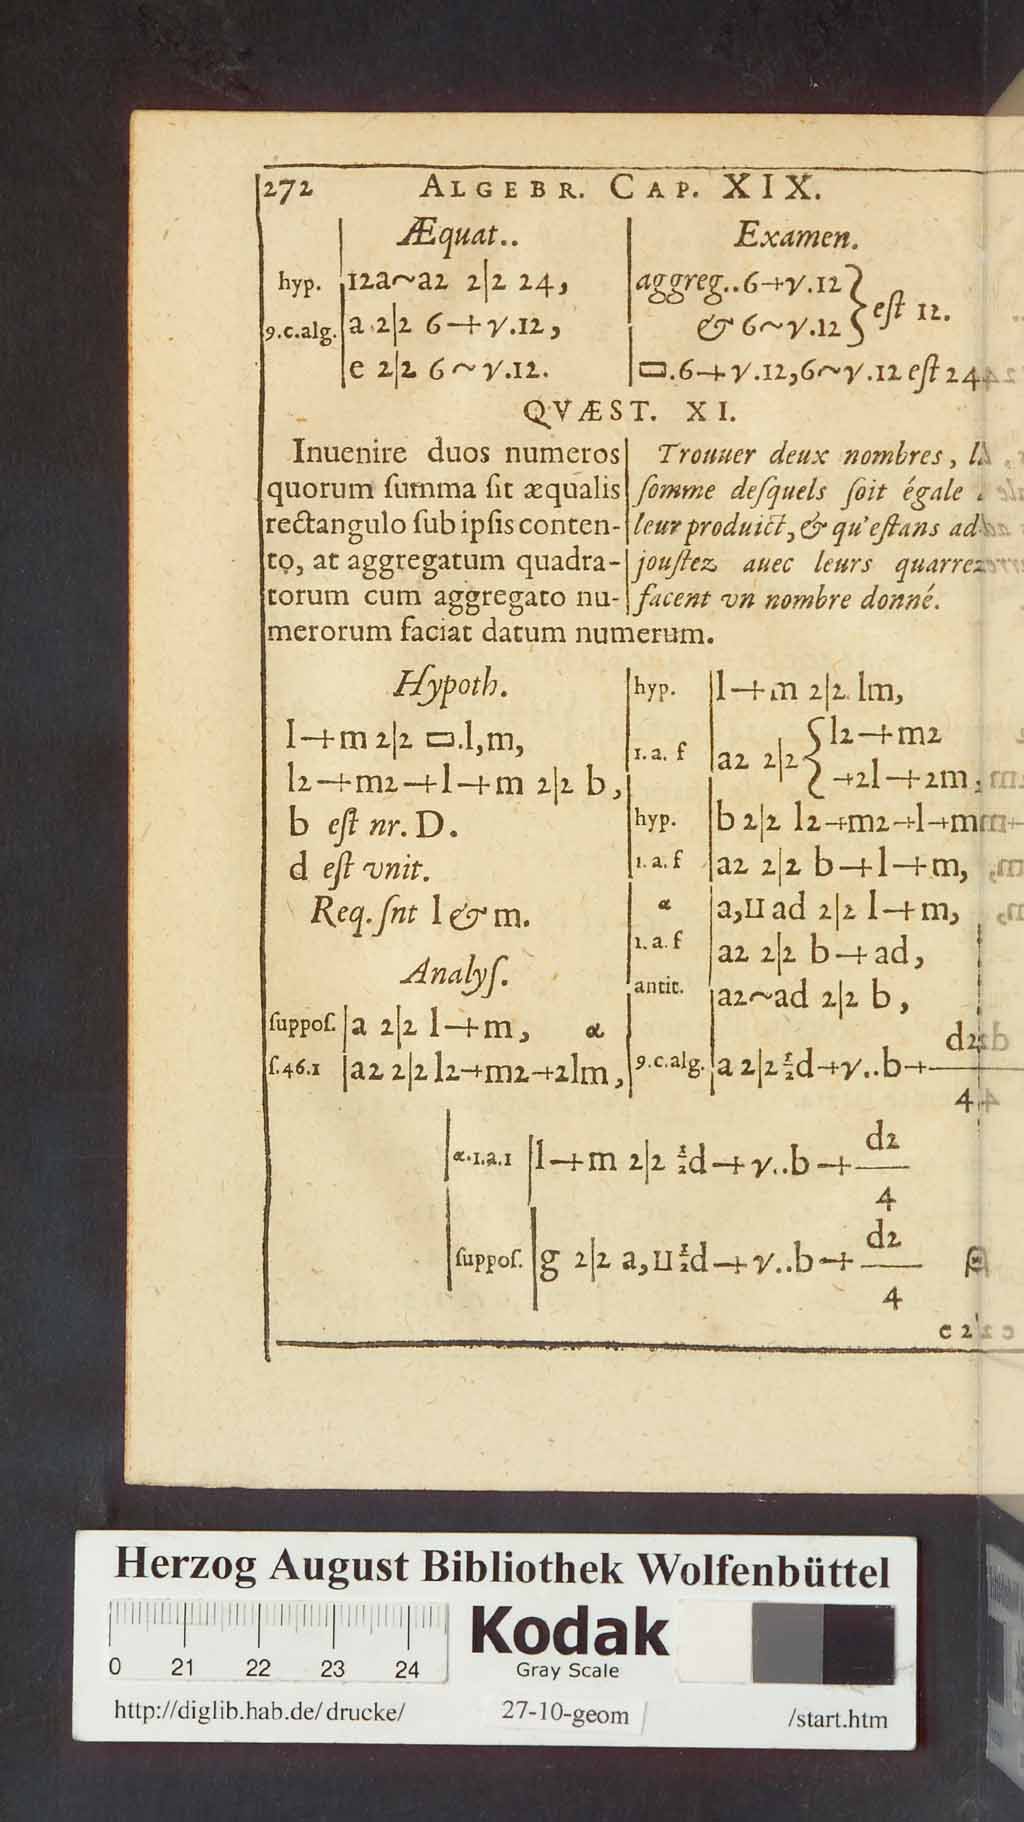 272 ALGEBR. CAP. XIX.
Æquat..
hyp. 12a~a2 2|2 24,
9.c.alg. a 2|2 6-+γ.12,
e 2|2 6~γ.12.
Examen.
aggreg..6-+γ.12
& 6~γ.12 } eſt 12.
▭.6-+γ.12,6~γ.12 eſt 24
QVÆST. XI.
Inuenire duos numeros
quorum ſumma ſit æqualis
rectangulo ſub ipſis conten-
to, at aggregatum quadra-
torum cum aggregato nu-
merorum faciat datum numerum.
Trouuer deux nombres,
ſomme deſquels ſoit égale
leur produict, & qu'eſtans ad
jouſtez auec leurs quarrez
facent vn nombre donné.
Hypoth.
l-+m 2|2 ▭.l,m,
l2-+m2-+l-+m 2|2 b,
b eſt nr. D.
d eſt vnit.
Req. ſnt l & m.
Analyſ.
ſuppoſ. a 2|2 l-+m, α
f.46.1 a2 2|2 l2-+m2-+2lm,
hyp. l-+m 2|2 lm,
1.a.f a2 2|2 { l2-+m2
-+2l-+2m,
hyp. b 2|2 l2-+m2-+l-+m
1.a.f a2 2|2 b-+l-+m,
α a,II ad 2|2 l-+m,
1.a.f a2 2|2 b-+ad,
antit. a2~ad 2|2 b,
9.c.alg. a 2|2 ½d-+γ..b-+ d2/4
α.1.a.1 l-+m 2|2 ½d-+γ..b-+ d2/4
ſuppoſ. g 2|2 a,II ½d-+γ..b-+ d2/4 β
Herzog August Bibliothek Wolfenbüttel
0 21 22 23 24
Kodak
Gray Scale
http://diglib.hab.de/drucke/ 27-10-geom /start.htm